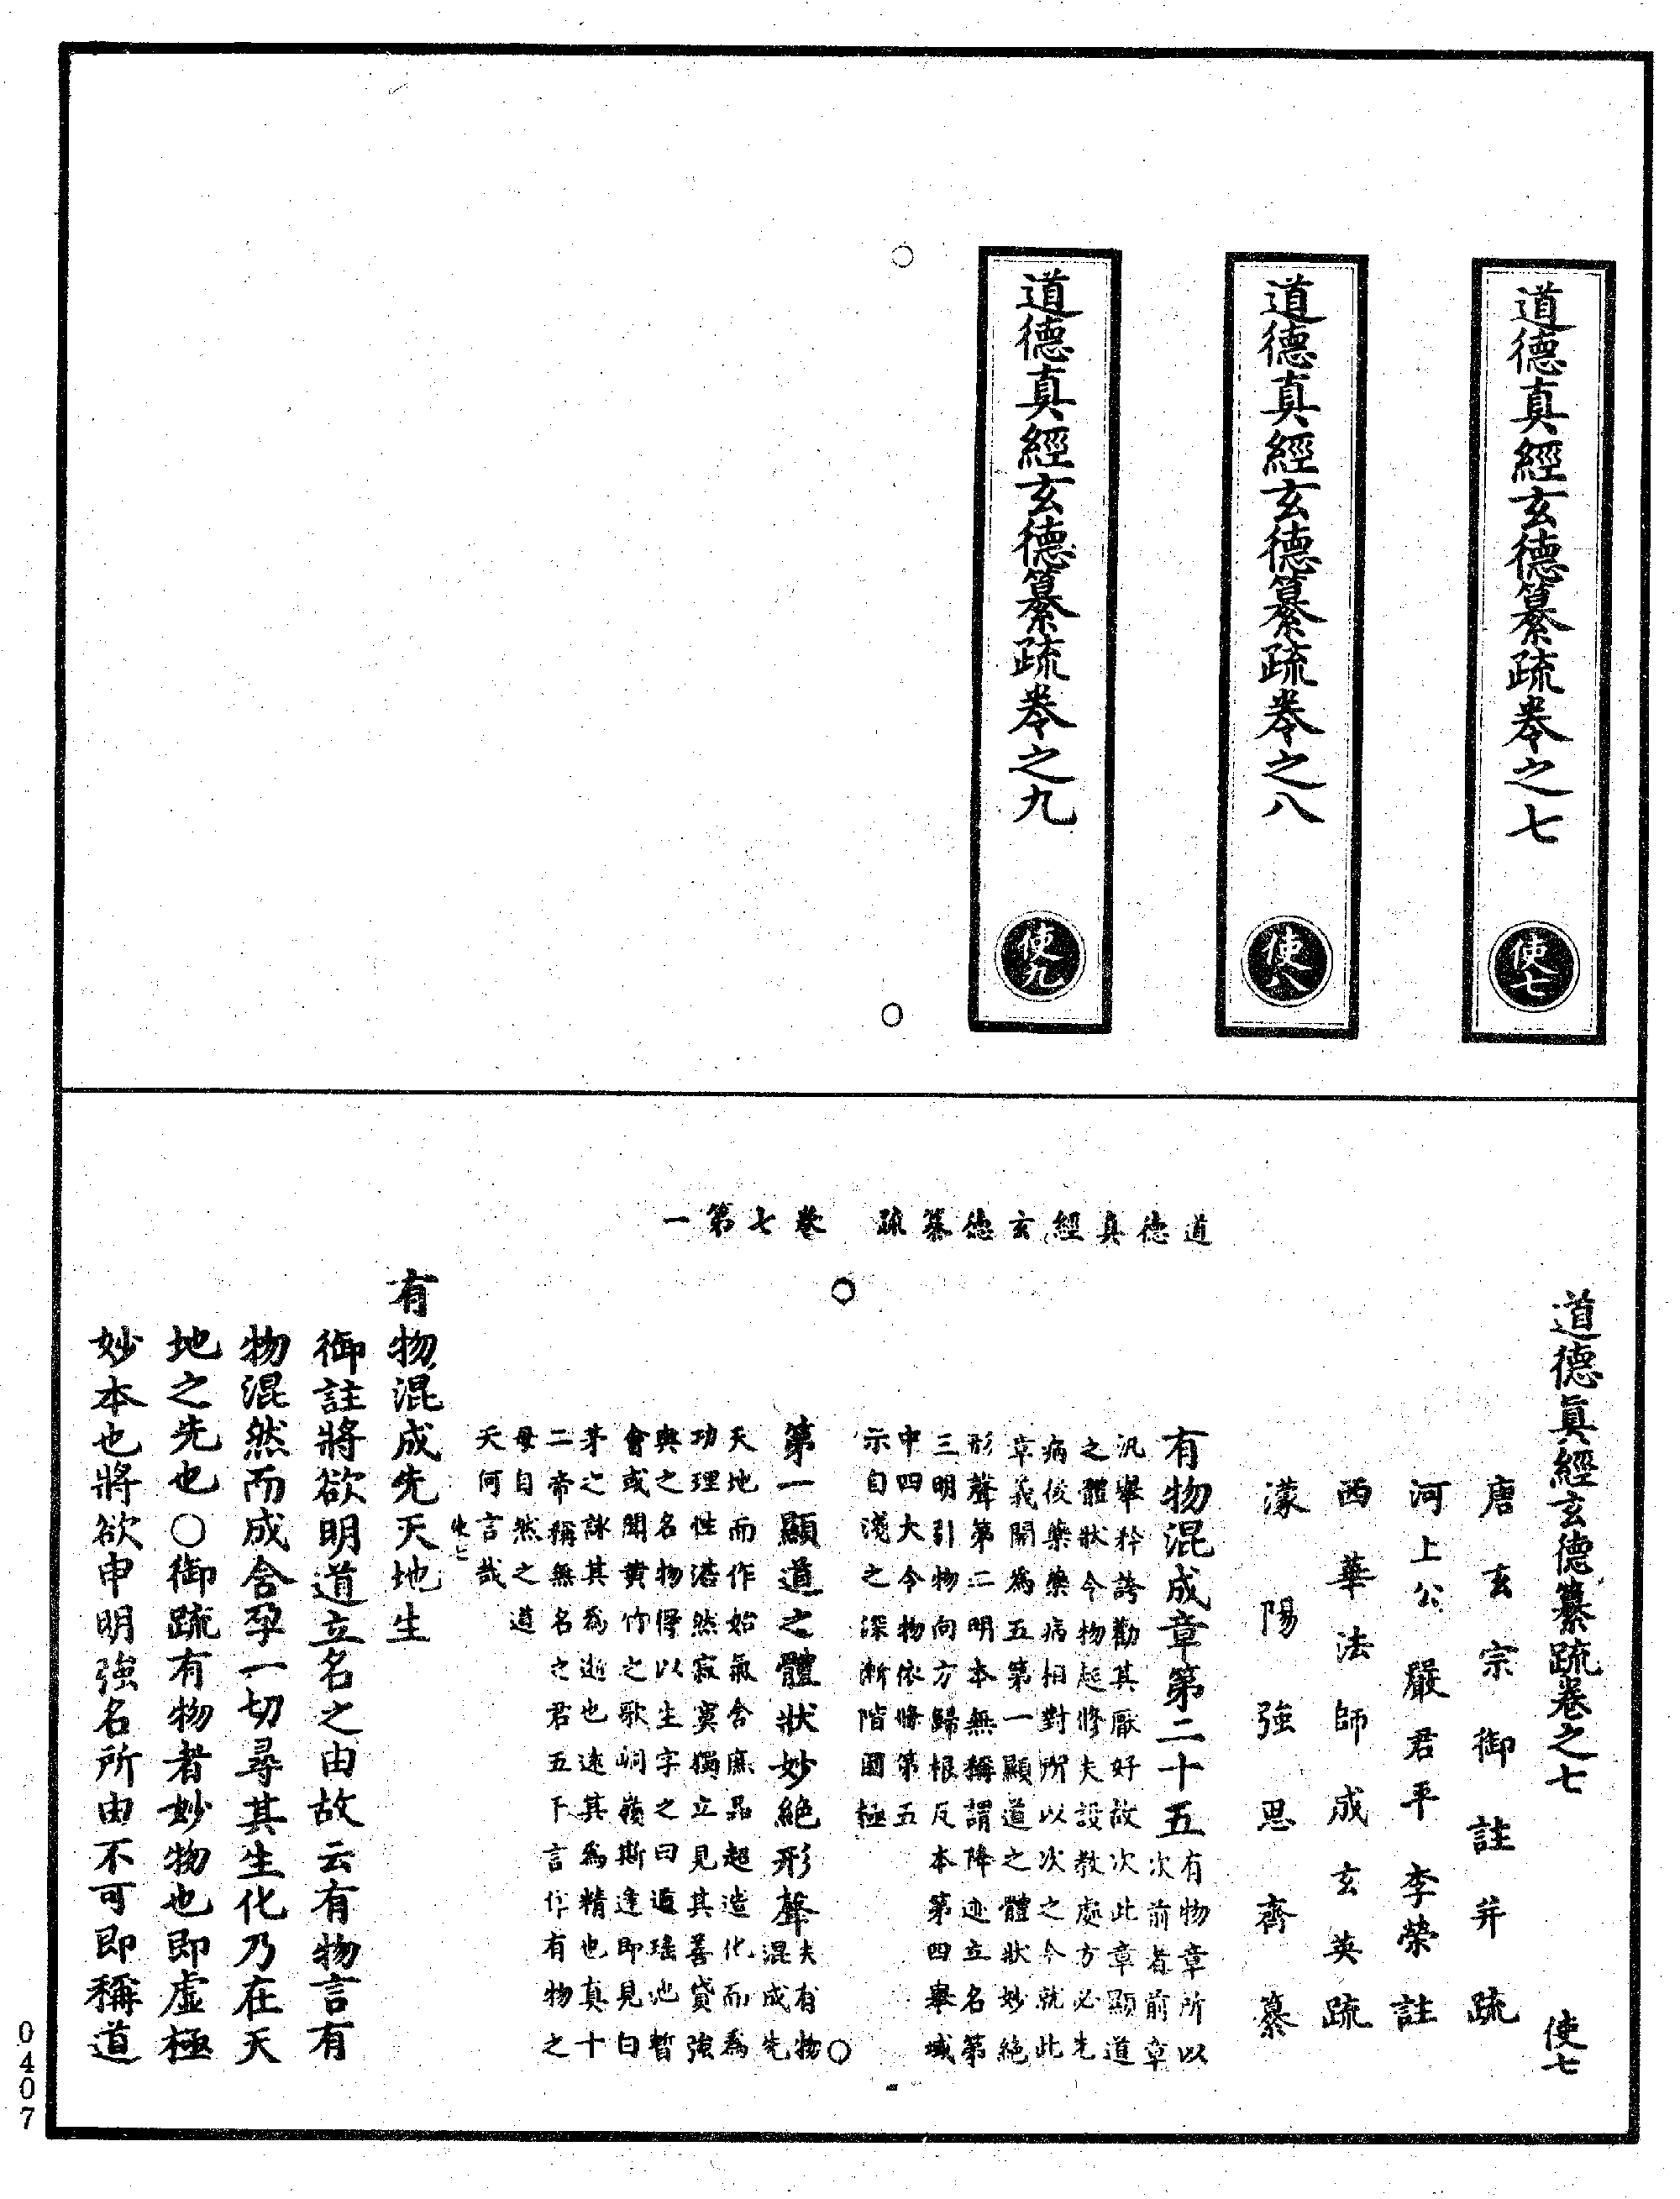 道德真經玄德纂疏卷之七
使七
道德真經玄德纂疏卷之八
使八
道德真經玄德纂疏卷之九
使九
道德真經玄德纂疏　卷七第一
道德眞經玄德纂疏卷之七　使七
唐玄宗御註并疏
河上公嚴君平李榮註
西華法師成玄英疏
濛陽強思齊纂
有物混成章第二十五
有物章所以
次前者前章
汎舉矜誇勸其厭好故次此章顯道
之體狀令物起修夫設教處方必先
病後藥藥病相對所以次之今就此
章義開為五第一顯道之體狀妙絕
形聲第二明本無稱謂降迹立名第
三明引物向方歸根反本第四舉域
中四大令物依修第五
示自淺之深漸階圓極
第一顯道之體狀妙絕形聲
夫有物
混成先
天地而作始氣含庶品超造化而為
功理性湛然寂寞獨立見其善貸強
與之名物得以生字之曰道瑤池暫
會或聞黃竹之歌峒嶺斯逢即見白
茅之詠其為逝也遠其為精也真十
二帝稱無名之君五千言作有物之
母自然之道
天何言哉
使七
有物混成先天地生
御註將欲明道立名之由故云有物言有
物混然而成含孕一切尋其生化乃在天
地之先也○御疏有物者妙物也即虛極
妙本也將欲申明強名所由不可即稱道
0407